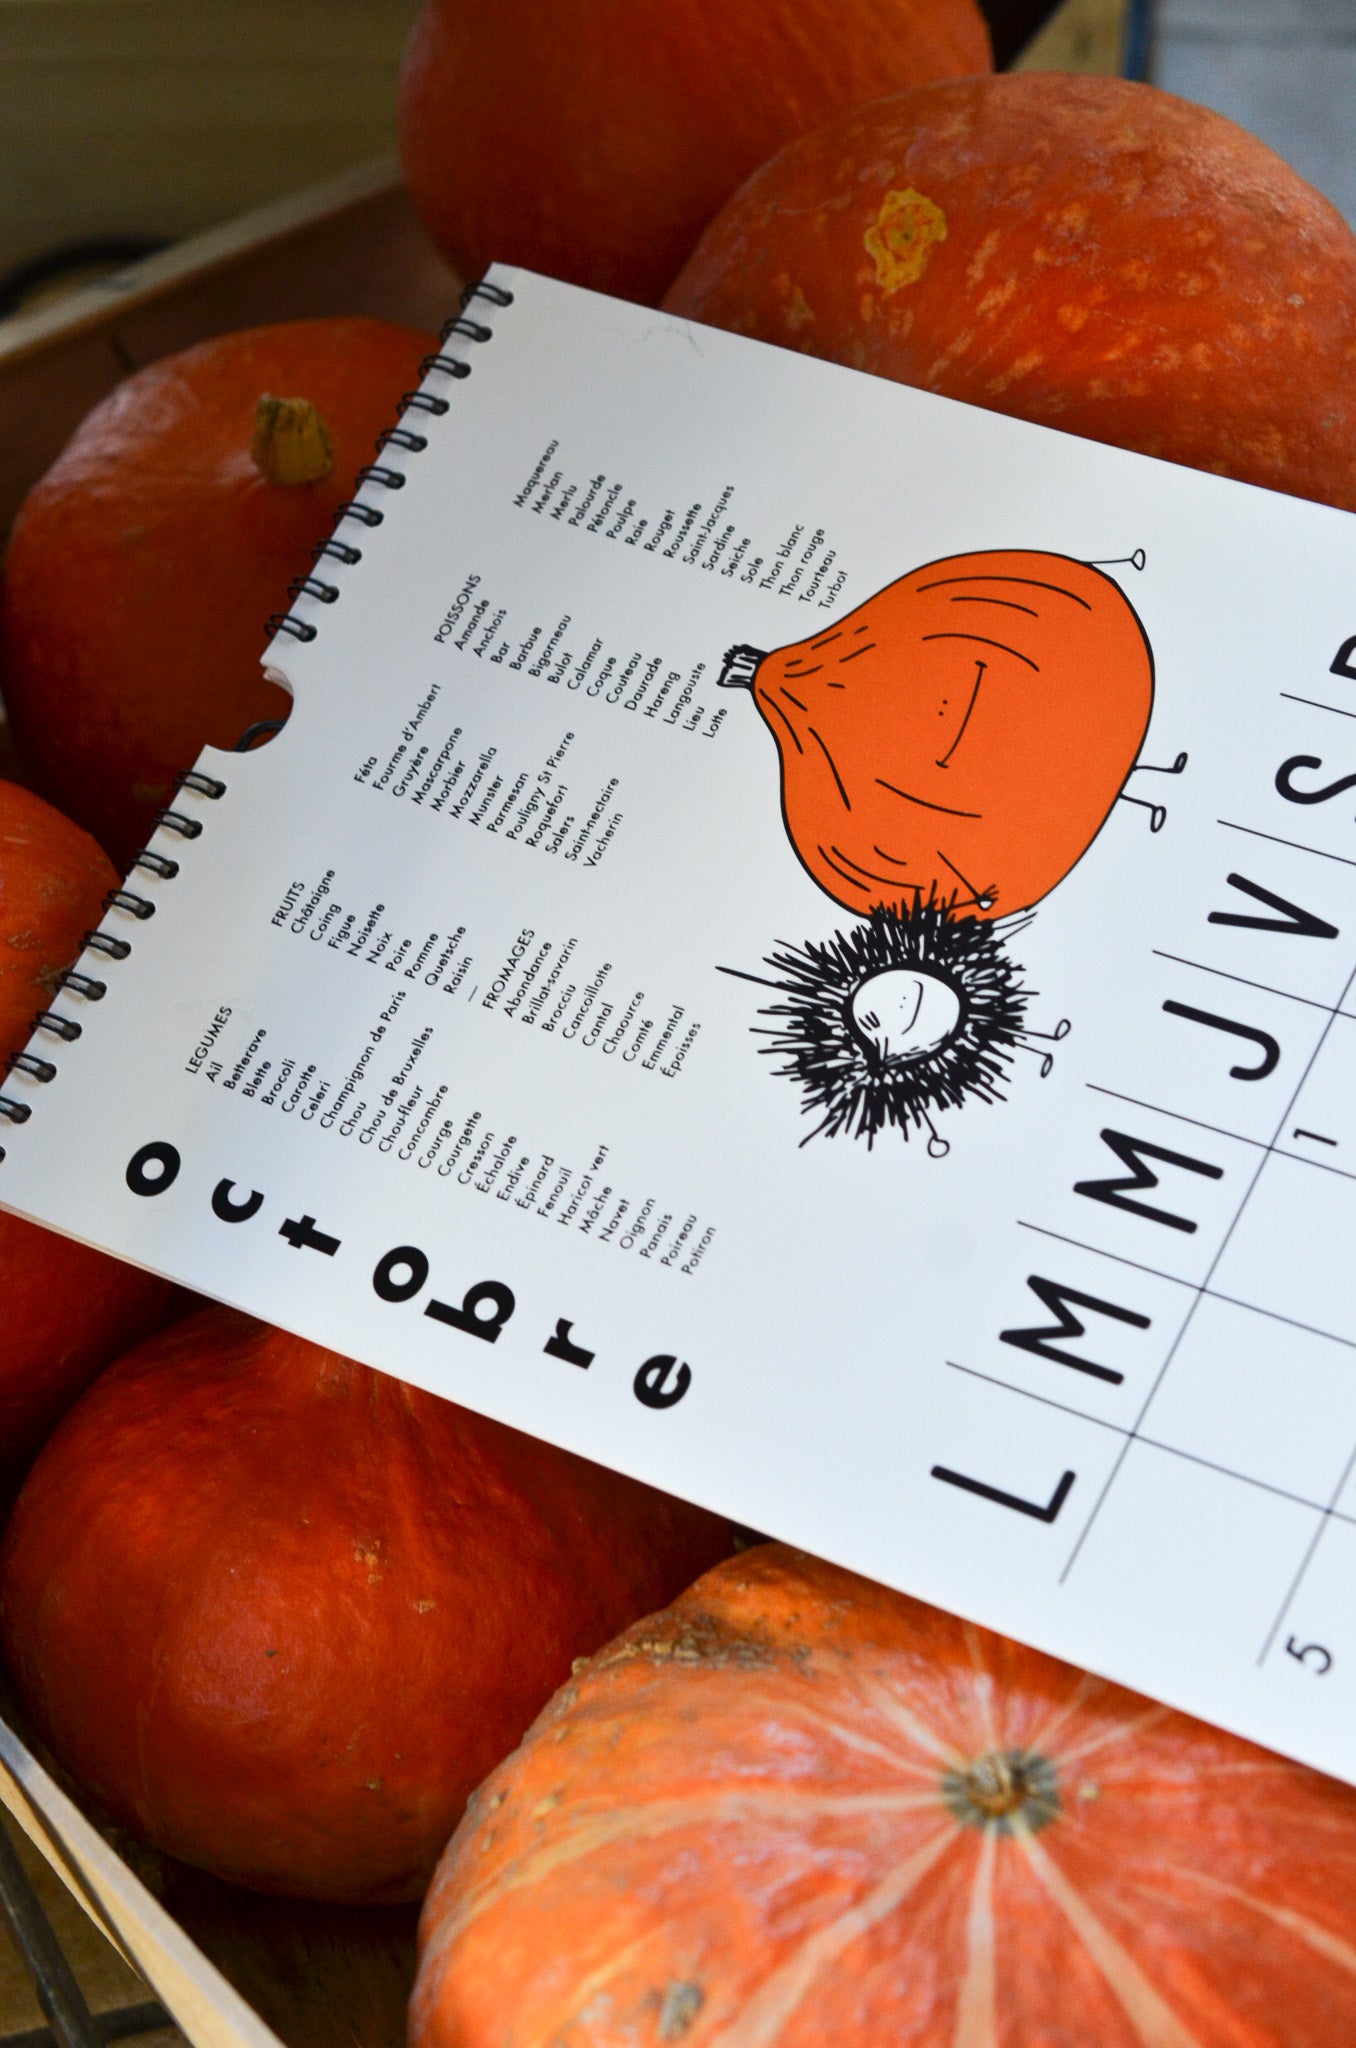 octobre
LEGUMES
Ail
Betterave
Blette
Brocoli
Carotte
Celeri
Champignon de Paris
Chou
Chou de Bruxelles
Chou-fleur
Concombre
Courge
Courgette
Cresson
Échalote
Endive
Épinard
Fenouil
Haricot vert
Mâche
Navet
Oignon
Panais
Poireau
Potiron
FRUITS
Châtaigne
Coing
Figue
Noisette
Noix
Poire
Pomme
Quetsche
Raisin
—
FROMAGES
Abondance
Brillat-savarin
Brocciu
Cancoillotte
Cantal
Chaource
Comté
Emmental
Époisses
Féta
Fourme d'Ambert
Gruyère
Mascarpone
Morbier
Mozzarella
Munster
Parmesan
Pouligny St Pierre
Roquefort
Salers
Saint-nectaire
Vacherin
POISSONS
Amande
Anchois
Bar
Barbue
Bigorneau
Bulot
Calamar
Coque
Couteau
Daurade
Hareng
Langouste
Lieu
Lotte
Maquereau
Merlan
Merlu
Palourde
Pétoncle
Poulpe
Raie
Rouget
Roussette
Saint-Jacques
Sardine
Seiche
Sole
Thon blanc
Thon rouge
Tourteau
Turbot
L M M J V S D
1
5